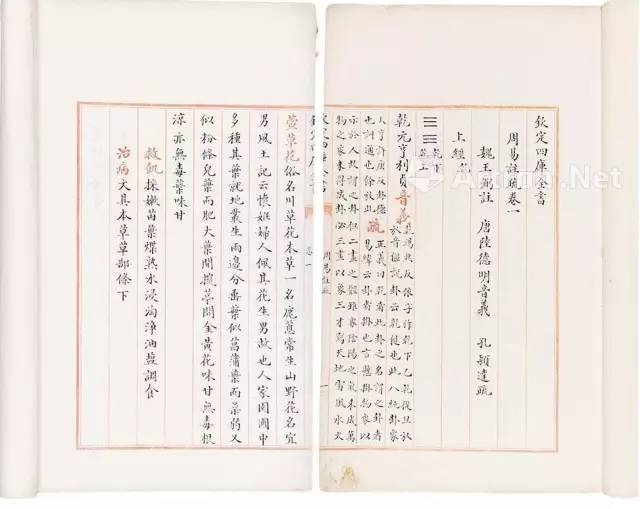 欽定四庫全書
周易註疏卷一
魏王弼註 唐陸德明音義 孔穎達疏
上經乾
乾下
乾上
乾元亨利貞音義
乾渴然反依字作乹下乙乾從旦㫃
音偃説卦云乾健也此八純卦象
天亨許庚反卦德
也訓通也餘放此
疏
正義曰乾者此卦之名謂之卦者
易緯云卦者掛也言懸掛物象以
示於人故謂之卦但二畫之體雖象陰陽之氣未成萬
物之象未得成卦必三畫以象三才寫天地雷風水火
周易註疏
卷一
欽定四庫全書
萱草花俗名川草花本草一名鹿葱常生山野花名宜
男風土記云懷姙婦人佩其花生男故也人家園圃中
多種其葉就地叢生兩邊分垂葉似菖蒲葉而柔弱又
似粉條兒葉而肥大葉間攛葶開金黄花味甘無毒根
涼亦無毒葉味甘
救飢採嫩苗葉煠熟水浸淘淨油鹽調食
治病文具本草草部條下
Artron.Net